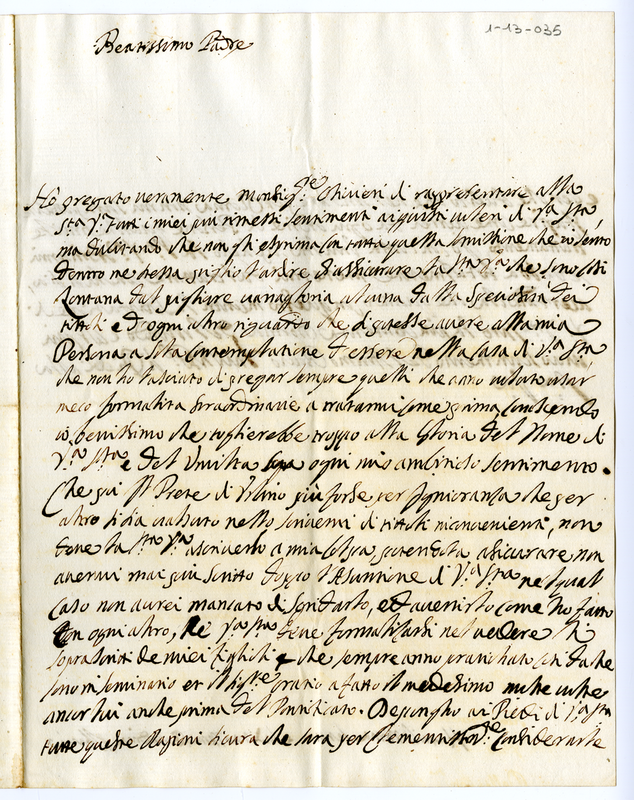 1-13-035
Beatissimo Padre
Ho pregato veramente Monsig.re Olivieri di rappresentare alla
S.tà V.a tutti i miei più rimessi sentimenti ai giusti voleri di V.a S.tà,
ma dubitando che non gli esprima con tutta quella umiltione che io sento
dentro me stessa piglio l'ardire d'assicurare la S.tà V.a che sono così
lontana dal pigliare vanagloria alcuna dalla Speciosita dei
titoli e d'ogni altro riguardo che si potesse avere alla mia
Persona a sola contemplatione d'essere nella Casa di V.a S.tà
che non ho lasciato di pregar sempre quelli che anno voluto usar
meco formalità straordinarie a trattarmi come prima, conoscendo
io benissimo che toglierebbe troppo alla Gloria del Nome di
V.a S.tà e del Umiltà sua ogni mio ambitioso sentimento.
Che poi il Prete di Urbino più forse per Ignoranza che per
altro si sia nello scrivermi di titoli inconvenienti, non
deve la S.tà V.a ascriverlo a mia Colpa potendola assicurare non
avermi mai più scritto doppo l'Asuntione di V.a S.tà nel qual
Caso non avrei mancato di sgridarlo, ed avertirlo come ho fatto
con ogni altro, Né V.a S.tà deve formalizarsi nel vedere li
soprascritti de miei figlioli che sempre anno praticato così da che
sono in seminario et il Sig.re Oratio a fatto il medesimo molte volte
ancor lui anche prima del Pontificato. Depongho ai Piedi di V.a S.tà
tutte queste Ragioni sicura che sarà per Clementis.te considerarle